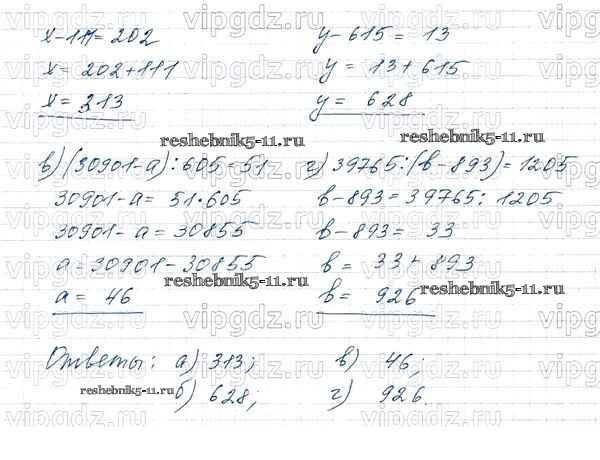 vipgdz.ru vipgdz.ru vipgdz.ru
x-111=202
x= 202+111
x= 313
y-615= 13
y= 13+615
y= 628
reshebnik5-11.ru
reshebnik5-11.ru
в) (30901-a):605=51
30901-a= 51·605
30901-a=30855
a=30901-30855
a= 46
г) 39765:(b-893)=1205
b-893=39765:1205
b-893= 33
b= 33+893
b= 926
reshebnik5-11.ru
reshebnik5-11.ru
Ответы: а) 313; в) 46;
б) 628; г) 926.
reshebnik5-11.ru
vipgdz.ru vipgdz.ru vipgdz.ru